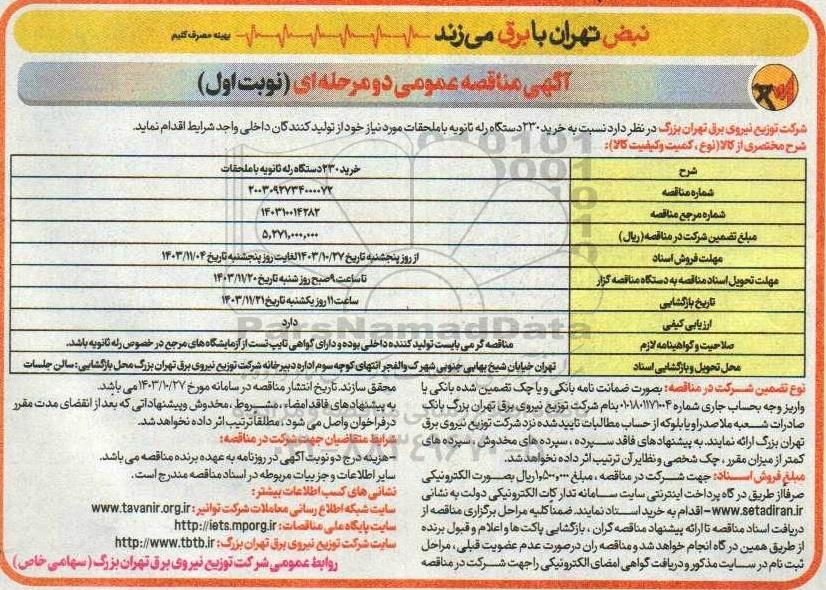 نبض تهران با برق می زند بهینه مصرف کنیم
آگهی مناقصه عمومی دو مرحله ای (نوبت اول)
شرکت توزیع نیروی برق تهران بزرگ در نظر دارد نسبت به خرید ۲۳۰ دستگاه رله ثانویه با ملحقات مورد نیاز خود از تولید کنندگان داخلی واجد شرایط اقدام نماید.
شرح مختصری از کالا (نوع ، کمیت وکیفیت کالا):
شرح خرید ۲۳۰ دستگاه رله ثانویه با ملحقات
شماره مناقصه ۲۰۰۳۰۹۲۷۳۴۰۰۰۰۷۲
شماره مرجع مناقصه ۱۴۰۳۱۰۰۱۴۲۸۲
مبلغ تضمین شرکت در مناقصه (ریال) ۵,۲۷۱,۰۰۰,۰۰۰
مهلت فروش اسناد از روز پنجشنبه تاریخ ۱۴۰۳/۱۰/۲۷ لغایت روز پنجشنبه تاریخ ۱۴۰۳/۱۱/۰۴
مهلت تحویل اسناد مناقصه به دستگاه مناقصه گزار تا ساعت ۹ صبح روز شنبه تاریخ ۱۴۰۳/۱۱/۲۰
تاریخ بازگشایی ساعت ۱۱ روز یکشنبه تاریخ ۱۴۰۳/۱۱/۲۱
ارزیابی کیفی دارد
صلاحیت و گواهینامه لازم مناقصه گر می بایست تولید کننده داخلی بوده و دارای گواهی تایپ تست از آزمایشگاه های مرجع در خصوص رله ثانویه باشد.
محل تحویل و بازگشایی اسناد تهران خیابان شیخ بهایی جنوبی شهرک والفجر انتهای کوچه سوم اداره دبیرخانه شرکت توزیع نیروی برق تهران بزرگ محل بازگشایی : سالن جلسات
نوع تضمین شرکت در مناقصه: بصورت ضمانت نامه بانکی و یا چک تضمین شده بانکی یا
واریز وجه بحساب جاری شماره ۰۱۰۱۸۰۱۱۷۱۰۰۴ بنام شرکت توزیع نیروی برق تهران بزرگ بانک
صادرات شعبه ملاصدرا و یا بلوکه از حساب مطالبات تایید شده نزد شرکت توزیع نیروی برق
تهران بزرگ ارائه نمایند. به پیشنهادهای فاقد سپرده ، سپرده های مخدوش ، سپرده های
کمتر از میزان مقرر ، چک شخصی و نظایر آن ترتیب اثر داده نخواهد شد.
مبلغ فروش اسناد: جهت شرکت در مناقصه ، مبلغ ۱,۵۰۰,۰۰۰ ریال بصورت الکترونیکی
صرفاً از طریق درگاه پرداخت اینترنتی سایت سامانه تدارکات الکترونیکی دولت به نشانی
www.setadiran.ir- اقدام به خرید اسناد نمایند. ضمنا کلیه مراحل برگزاری مناقصه از
دریافت اسناد مناقصه تا ارائه پیشنهاد مناقصه گران ، بازگشایی پاکت ها و اعلام و قبول برنده
از طریق همین درگاه انجام خواهد شد و مناقصه گران در صورت عدم عضویت قبلی ، مراحل
ثبت نام در سایت مذکور و دریافت گواهی امضای الکترونیکی را جهت شرکت در مناقصه
محقق سازند. تاریخ انتشار مناقصه در سامانه مورخ ۱۴۰۳/۱۰/۲۷ می باشد.
به پیشنهادهای فاقد امضاء ، مشروط ، مخدوش و پیشنهاداتی که بعد از انقضای مدت مقرر
در فراخوان واصل می شود ، مطلقا ترتیب اثر داده نخواهد شد.
شرایط متقاضیان جهت شرکت در مناقصه:
-هزینه درج دو نوبت آگهی در روزنامه به عهده برنده مناقصه می باشد.
سایر اطلاعات و جزییات مربوطه در اسناد مناقصه مندرج است.
نشانی های کسب اطلاعات بیشتر:
سایت شبکه اطلاع رسانی معاملات شرکت توانیر: www.tavanir.org.ir
سایت پایگاه ملی مناقصات: http://iets.mporg.ir
سایت شرکت توزیع نیروی برق تهران بزرگ: http://www.tbtb.ir
روابط عمومی شرکت توزیع نیروی برق تهران بزرگ (سهامی خاص)
ParsNamadData